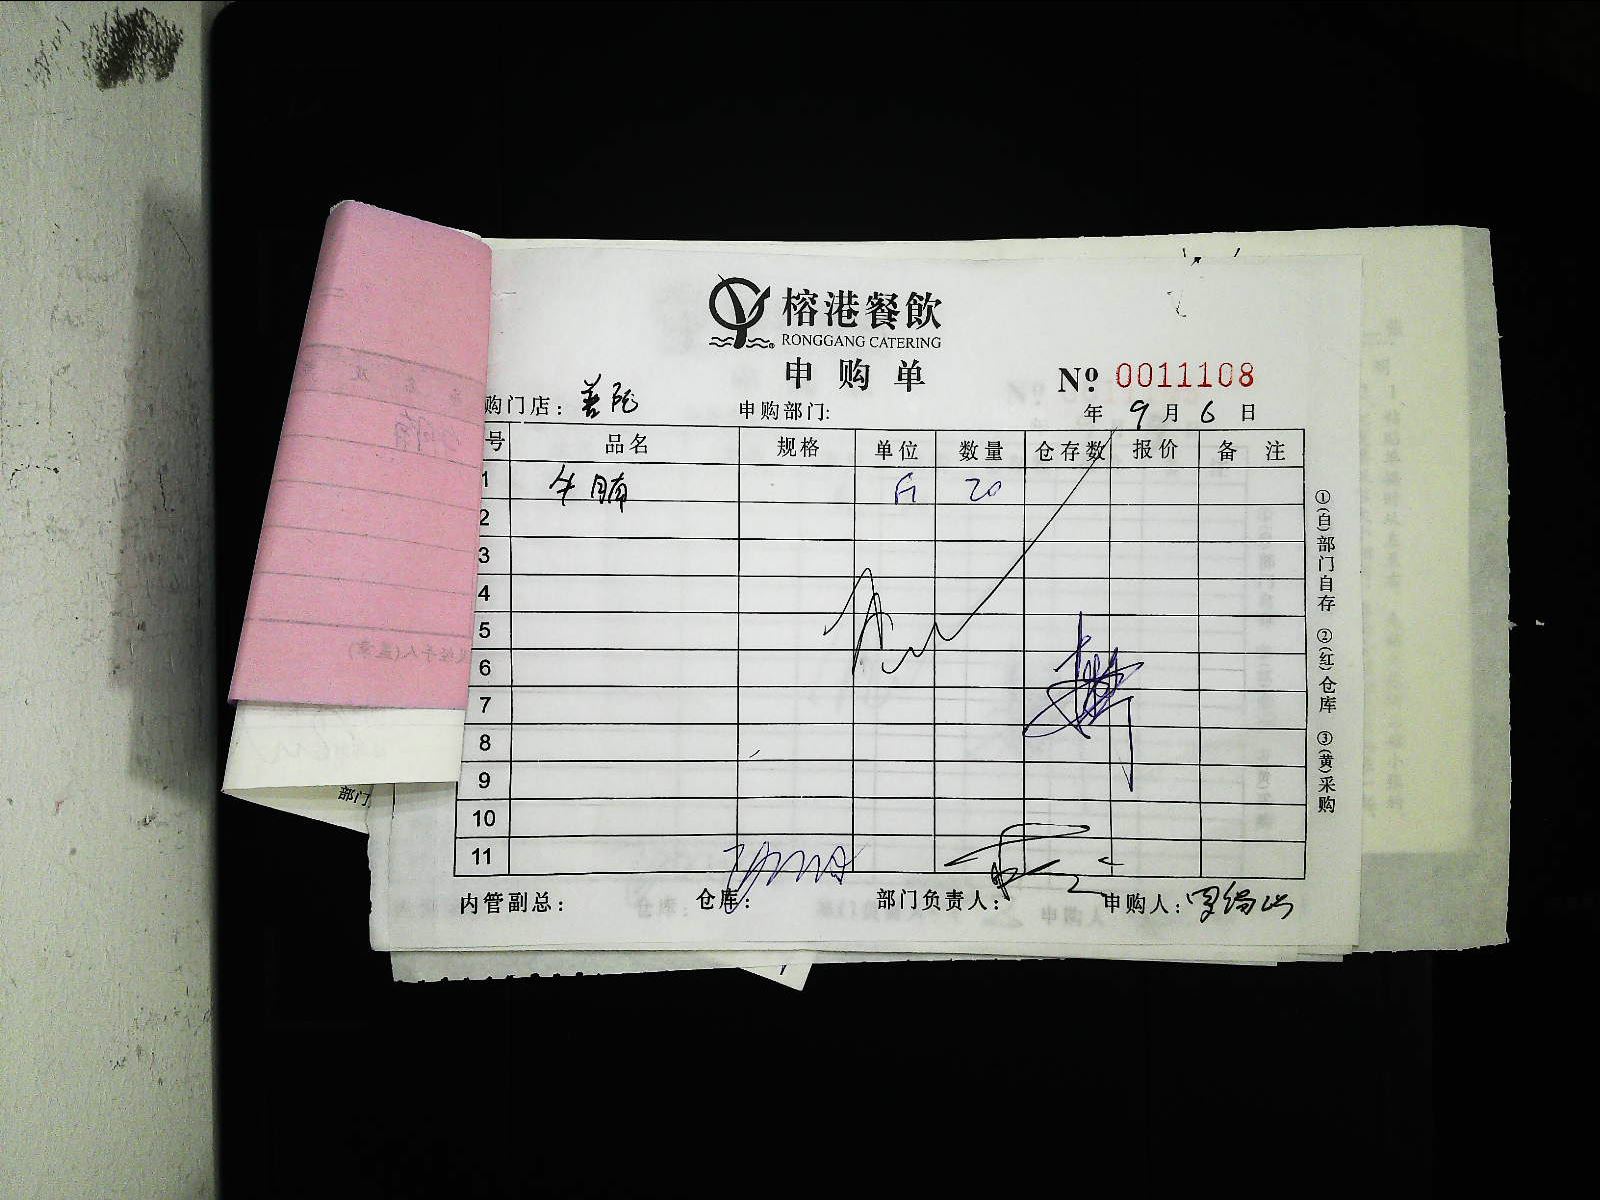 榕港餐飲
RONGGANG CATERING
申购单
Nº 0011108
购门店：普陀 申购部门: 年 9 月 6 日
号 品名 规格 单位 数量 仓存数 报价 备注
1 牛腩 斤 20
2
3
4
5
6
7
8
9
10
11
内管副总： 仓库： 部门负责人： 申购人：
①(白)部门自存 ②(红)仓库 ③(黄)采购
部门